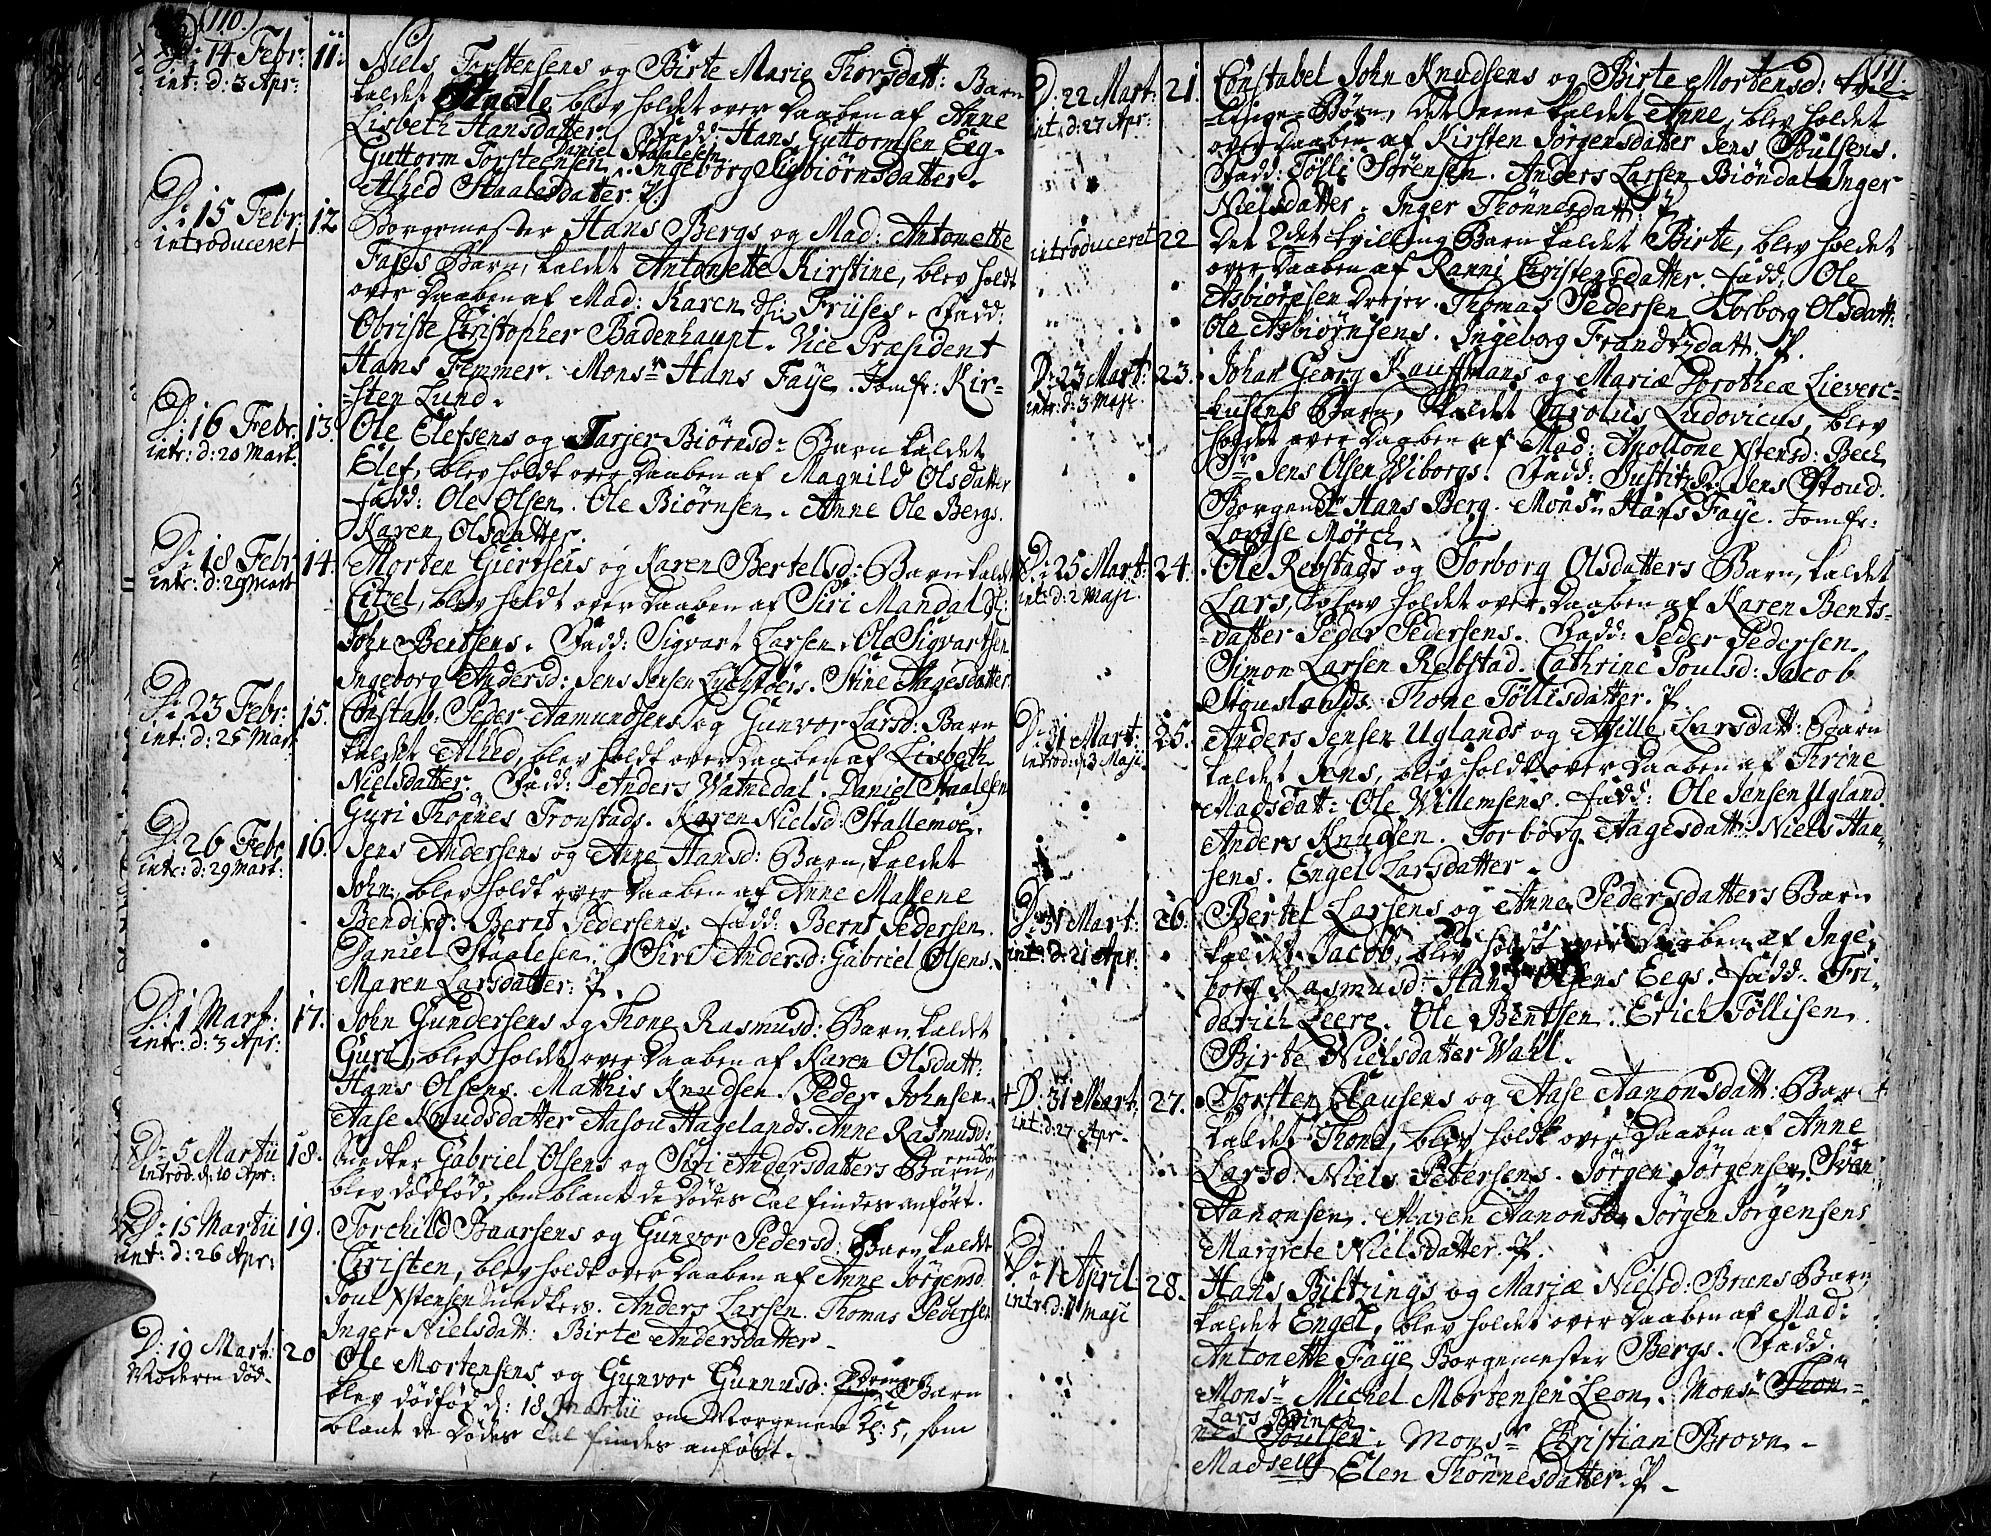 (110.)
D: 14 Febr: 11. Niels Torstensens og Birte Marie Thorsdatt: Barn
int: d: 3 Apr: kaldet Staale blev holdet over Daaben af Anne
Lisbeth Hansdatter. Fadd: Hans Guttormsen Eeg.
Daniel Staalesen
Guttorm Torsteensen. Ingeborg Sigbiørnsdatter.
Alhed Staalesdatter. P.
D: 15 Febr 12 Borgemester Hans Bergs og Mad: Antonette
introduceret Fayes Barn, kaldet Antonette Kirstine, blev holdt
over Daaben af Mad: Karen Friises. Fadd:
Obriste Christopher Badenhaupt. Vice Præsident
Hans Femmer. Monsr Hans Faye. Jomfr: Kir-
-sten Lund.
D: 16 Febr. 13. Ole Elefsens og Tarjer Biørnsd: Barn kaldet
intr: d: 20 Mart: Elef, blev holdt over Daaben af Magnild Olsdatter
fadd: Ole Olsen. Ole Biørnsen. Anne Ole Bergs.
Karen Olsdatter.
D: 18 Febr 14. Morten Gierthsens og Karen Bertelsd: Barn kaldet
intr: d: 29 Mart Citzel, blev holdt over Daaben af Siri Mandal
John Bentsens. Fadd: Sigvart Larsen. Ole Sigvartsen
Ingeborg Andersd: Jens Jensen. Stine Aagesdatter
D: 23 Febr: 15. Constab. Peder Aamundsens og Gunvor Larsd: Barn
int: d: 25 Mart kaldet Alhed, blev holdt over Daaben af Lisbeth
Nielsdatter. Fadd: Anders Watnedal. Daniel Staalesen
Guri Thonnes Tronstads. Karen Nielsd: Stallemoe.
D: 26 Febr 16. Jens Andersens og Anne Hansd: Barn, kaldet
intr: d: 29 Mart: John, blev holdt over Daaben af Anne Malene
Bendixd: Bernt Pedersens. fadd: Bernt Pedersen.
Daniel Staalesen. Siri Andersd: Gabriel Olsens.
Maren Larsdatter: P.
D: 1 Mart: 17. John Gundersens og Thone Rasmusd: Barn kaldet
intr: d: 3 Apr: Guri, blev holdt over Daaben af Karen Olsdatt:
Hans Olsens. Mathis Knudsen. Peder Johnsen.
Aase Knudsdatter Aasou Hagelands. Anne Rasmusd:
D: 5 Martii 18. Snedker Gabriel Olsens og Siri Andersdatters Barn,
introd. d: 10 Apr: blev dødfød, som blant de Dødes Tal findes anført.
D: 15 Martii 19. Torchild Baarsens og Gunvor Pedersd: Barn kaldet
int: d: 26 Apr: Christen, blev holdt over Daaben af Anne Jørgensd
Poul Xstensen Snedkers. Anders Larsen. Thomas Pedersen
Inger Nielsdatt: Birte Andersdatter.
D: 19 Mart: 20 Ole Mortensens og Gunvor Gunnusd: Drenge Barn
Moderen død. blev dødfød d: 18 Martii om Morgenen Kl: 5, som
blant de Dødes Tal findes anført.
111.
D: 22 Mart: 21. Constabel John Knudsens og Birte Mortensd: tvil-
int: d: 27 Apr: -linge-Børn, det eene kaldet Anne, blev holdet
over Daaben af Kirsten Jørgensdatter Jens Poulsens.
Fadd: Tølli Sørensen. Anders Larsen Biøndal Inger
Nielsdatter. Inger Thönnesdatt: P.
introduceret 22 Det 2det tvilling Barn kaldet Birte, blev holdet
over Daaben af Ranni Christensdatter. fadd: Ole
Asbiørnsen Drejer. Thomas Pedersen Torborg Olsdatt:
Ole Asbiørnsens. Ingeborg Frandtzdatt. P.
D: 23 Mart: 23. Johan Georg Kauffmans og Mariæ Dorotheæ Lieverc-
intr: d: 3 Maji -husens Barn, kaldet Carolus Ludovicus, blev
holdet over Daaben af Mad: Apollone Xstensd: Bech
Sr Jens Olsen Wiborgs. Fadd: Justitzr: Jens Stoud.
Borgem Hans Berg. Monsr Hans Faye. Jomfr:
Lovise Mørch.
D: 25 Mart: 24. Ole Rebstads og Torborg Olsdatters Barn, kaldet
int: d: 2 Maji Lars, blev holdet over Daaben af Karen Bents-
-datter Peder Pedersens. Fadd: Peder Pedersen.
Simon Larsen Rebstad. Cathrine Poulsd: Jacob
Stouslands. Thone Tøllisdatter. P
D: 31 Mart: 25. Anders Jensen Uglands og Asille Larsdatt: Barn
introd: d: 3 Maji kaldet Jens, blev holdt over Daaben af Trine
Madsdatt: Ole Willemsens. fadd: Ole Jensen Ugland
Anders Knudsen. Torborg Aagesdatt: Niels Han-
sens. Engel Larsdatter.
D: 31 Mart: 26. Bertel Larsens og Anne Pedersdatters Barn
int: d: 21 Apr: kaldet Jacob, blev holdt over Daaben af Inge-
borg Rasmusd: Hans Olsens Eegs. fadd: Fri-
derich Leere. Ole Bentsen. Erich Tøllisen.
Birte Nielsdatter Wahl.
D: 31 Mart: 27. Torsten Clausens og Aase Aanonsdatt: Barn
int: d: 27 Apr. kaldet Thone, blev holdt over Daaben af Anne
Larsd: Niels Petersens. Jørgen Jørgensen. Sven
Aanonsen. Maren Aanonsd. Jørgen Jørgensens
Margrete Nielsdatter. P.
D: 1 April 28. Hans Biltzings og Mariæ Nielsd: Bruns Barn
introd: 11 Maji kaldet Engel, blev holdet over Daaben af Mad:
Antonette Faye Borgemester Bergs. Fadd:
Monsr Michel Mortensen Leon. Monsr Thon-
Lars Prince
nes Poulsen. Monsr Christian Brovn.
Madselle Elen Thönnesdatter. P.